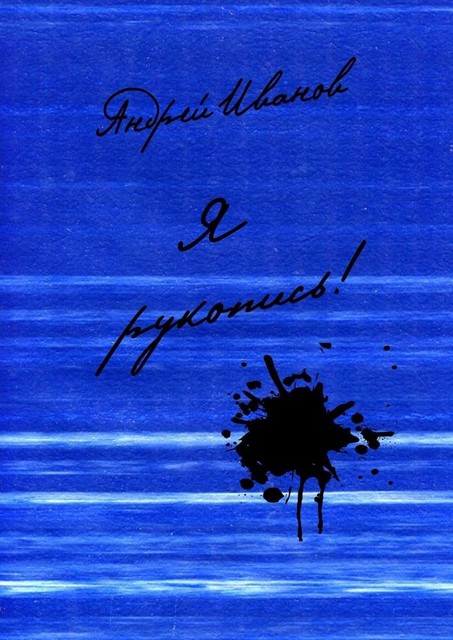 Андрей Иванов
Я
рукопись!